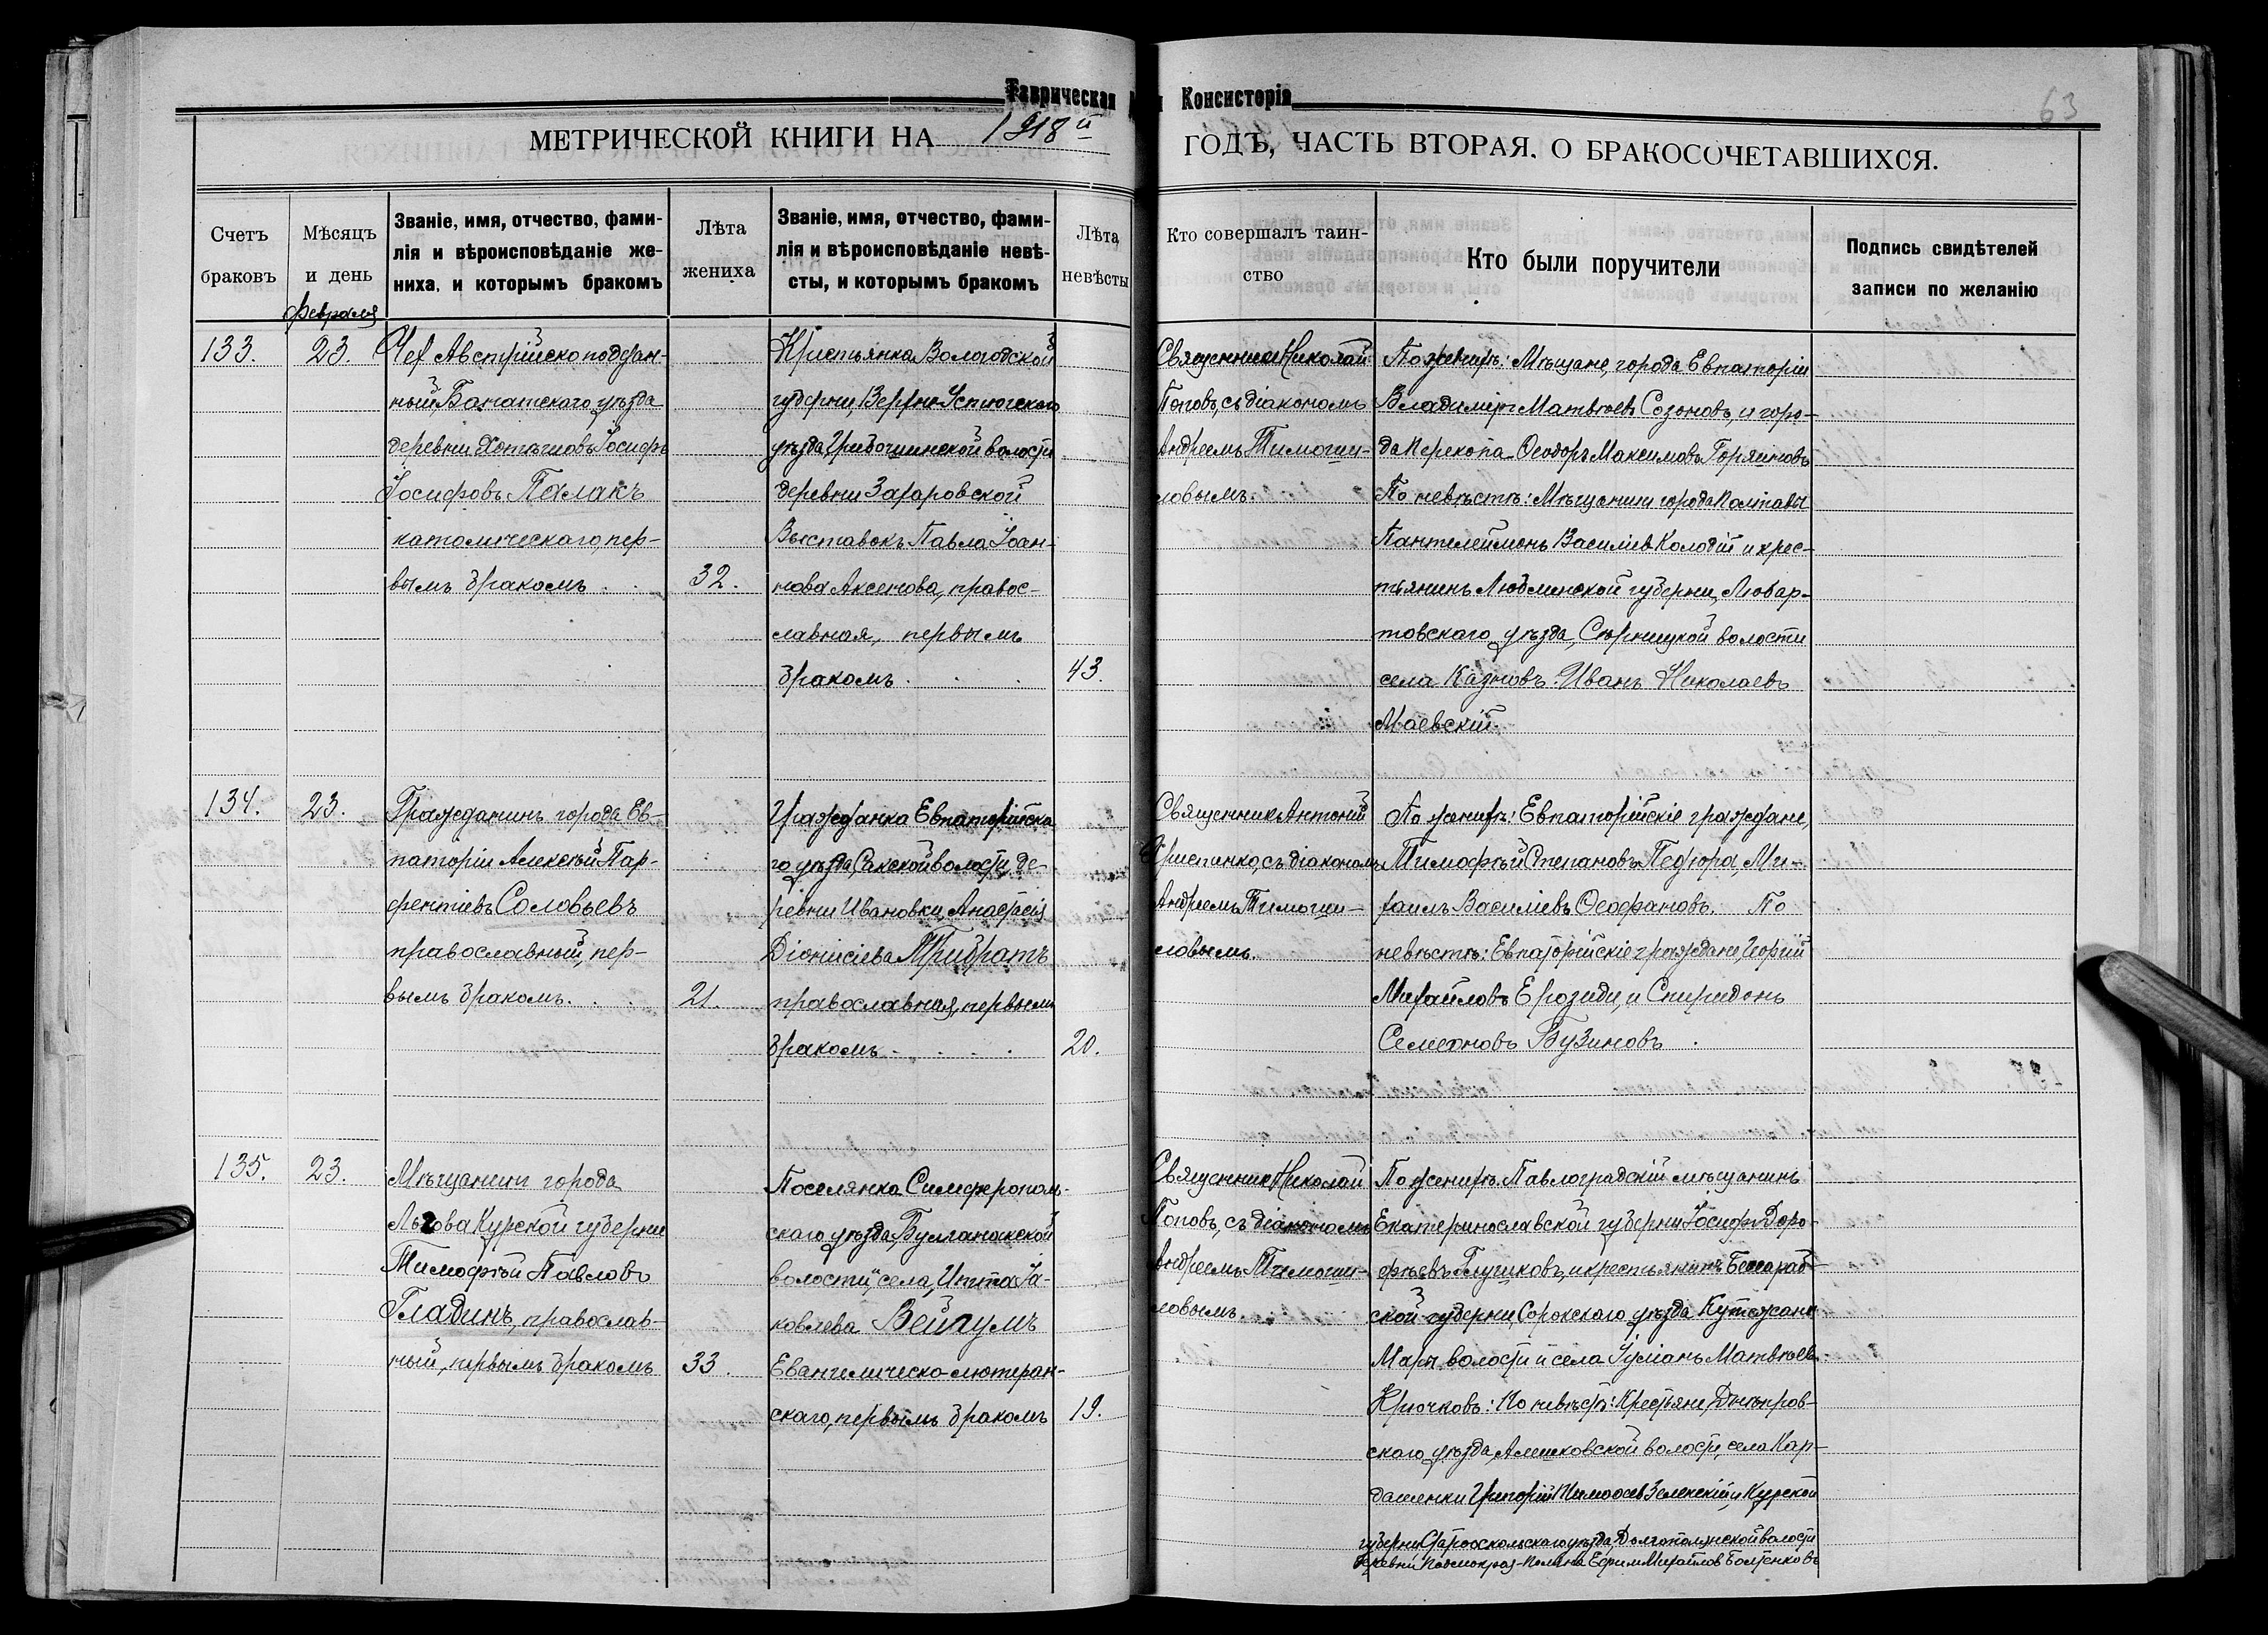 Таврическая
Консисторія
63
МЕТРИЧЕСКОЙ КНИГИ НА 1918й
ГОДЪ, ЧАСТЬ ВТОРАЯ, О БРАКОСОЧЕТАВШИХСЯ.
Счетъ
браковъ
Мѣсяцъ
и день
Февраля
Званіе, имя, отчество, фами-
лія и вѣроисповѣданіе же-
ниха, и которымъ бракомъ
Лѣта
жениха
Званіе, имя, отчество, фами-
лія и вѣроисповѣданіе невѣ-
сты, и которымъ бракомъ
Лѣта
невѣсты
Кто совершалъ таин-
ство
Кто были поручители
Подпись свидѣтелей
записи по желанію
133.
23.
Чех Австрійско поддан-
ный уѣзда
деревни Іосифъ
Іосифовъ Палакъ
католическаго, пер-
вымъ бракомъ
32.
Крестьянка Вологодской
губерніи, Верхне-Устюгскаго
уѣзда, волости
деревни Захаровской
Выставокъ Павла Іоан-
нова Аксенова, правос-
лавная, первымъ
бракомъ
43.
Священникъ Николай
Поповъ, съ діакономъ
Андреемъ Тимоши-
ловымъ.
По женихѣ: Мѣщане, города Евпаторіи
Владиміръ Матвѣевъ Созоновъ, и горо-
да Перекопа Ѳеодоръ Максимовъ Горяиновъ
По невѣстѣ: Мѣщанинъ города Полтавы
Пантелеймонъ Василіевъ Колодій и крес-
тьянинъ Люблинской губерніи, Любар-
товскаго уѣзда, волости
села Иванъ Николаевъ
Маевскій.
134.
23.
Гражданинъ города Ев-
паторіи Алексѣй Пар-
фентіевъ Соловьевъ
православный, пер-
вымъ бракомъ
21.
Гражданка Евпаторійска
го уѣзда, Сакской волости, де-
ревни Ивановки, Анастасія
Діонисіева Трибратъ
православная, первымъ
бракомъ
20.
Священникъ Антоній
съ діакономъ
Андреемъ Тимоши-
ловымъ.
По женихѣ: Евпаторійскіе граждане,
Тимофѣй Степановъ Педюра, Ми-
хаилъ Василіевъ Ѳеофановъ. По
невѣстѣ: Евпаторійскіе граждане,
Михайловъ Ерозиди, и Спиридонъ
Семеновъ Бузиновъ.
135.
23.
Мѣщанинъ города
Льгова Курской губерніи
Тимофѣй Павловъ
Гладинъ, православ-
ный, первымъ бракомъ
33.
Поселянка Симферополь-
скаго уѣзда, Булганакской
волости, села, Ида Я-
ковлева Вейпумъ
Евангелическо-лютеран-
скаго, первымъ бракомъ
19.
Священникъ Николай
Поповъ, съ діакономъ
Андреемъ Тимоши-
ловымъ.
По женихѣ Павлоградскій мѣщанинъ
Екатеринославской губерніи Іосифъ Доро-
фѣевъ Глушковъ, и крестьянинъ Бессараб-
ской губерніи, Сорокскаго уѣзда
волости и села Іуліанъ Матвѣевъ
Крючковъ: По невѣстѣ: Крестьяне, Днѣпров-
скаго уѣзда, Алешковской волости, села Кар-
дашенки Григорій Тимоѳеевъ Зеленскій и Курской
губерніи Старооскольскаго уѣзда, Долгополянской волости
деревни Ефрим Михайлов